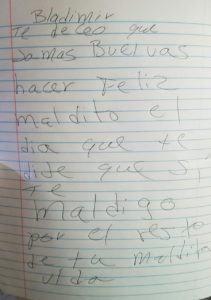 Bladimir
Te deceo que
Jamas Buelvas
hacer Feliz
maldito el
dia que te
dide que si,
Te
maldigo
por el resto
de tu maldita
vida